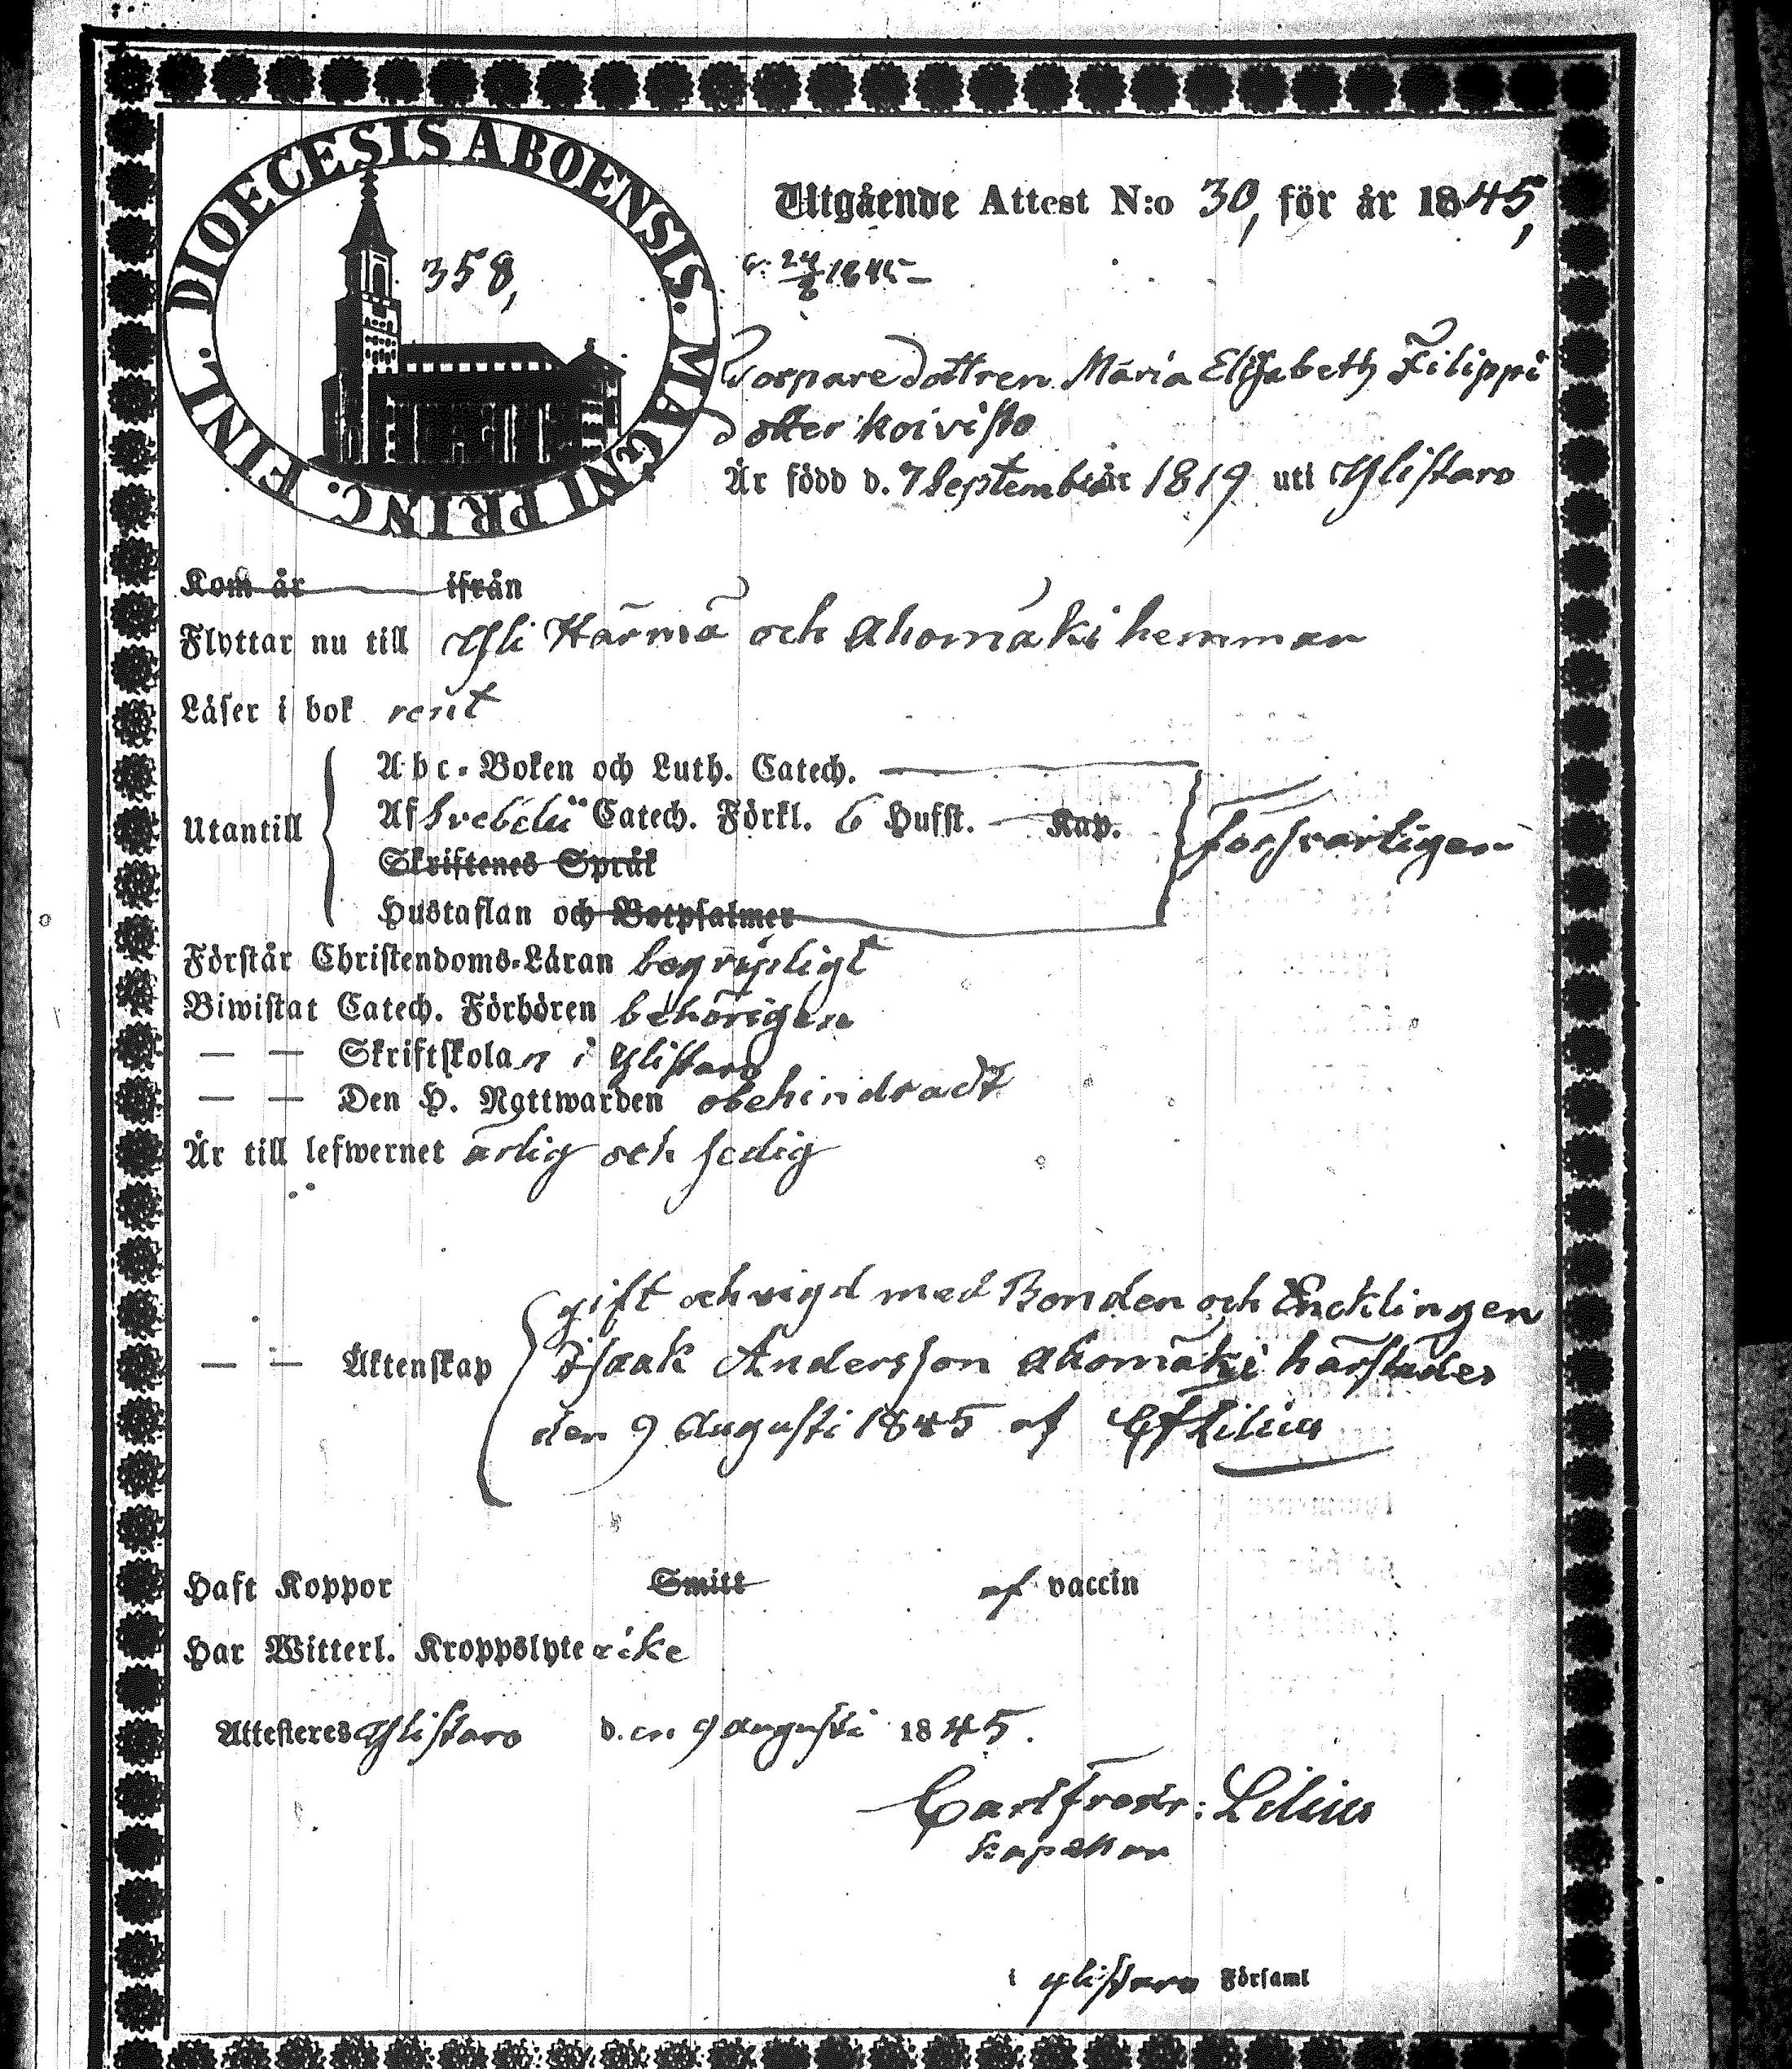 DIOECESIS ABOENSIS. MAGNI PRINC. FINL.
358,
Utgående Attest N:o 30, för år 1845,
24/8 1845 –
Torpare dottren Maria Elisabeth Filippi
dotter Koivisto
Är född d. 7 September år 1819 uti Ylistaro
Kom år ifrån
Flyttar nu till Yli Härmä och Ahomäki hemman
Läser i bok rent
Utantill
Abc-Boken och Luth. Catech.
Af Svebelii Catech. Förkl. 6 Hufst. — Kap.
Skriftenes Språk
Hustaflan och Botpsalmer
försvarligen
Förstår Christendoms-Läran begripligt
Biwistat Catech. Förhören behörigen
— — Skriftskolan i Ylistaro
— — Den H. Nattwarden obehindradt
Är till lefwernet ärlig och sedig
— — Äktenskap
gift och vigd med Bonden och Encklingen
Isaak Andersson Ahomäki härstädes
den 9 Augusti 1845 af CFLilius
Haft Koppor Smitt af vaccin
Har Witterl. Kroppslyte icke
Attesteres Ylistaro d. en 9 Augusti 1845.
Carl Fredr: Lilius
Kapellan
i Ylistaro Församl